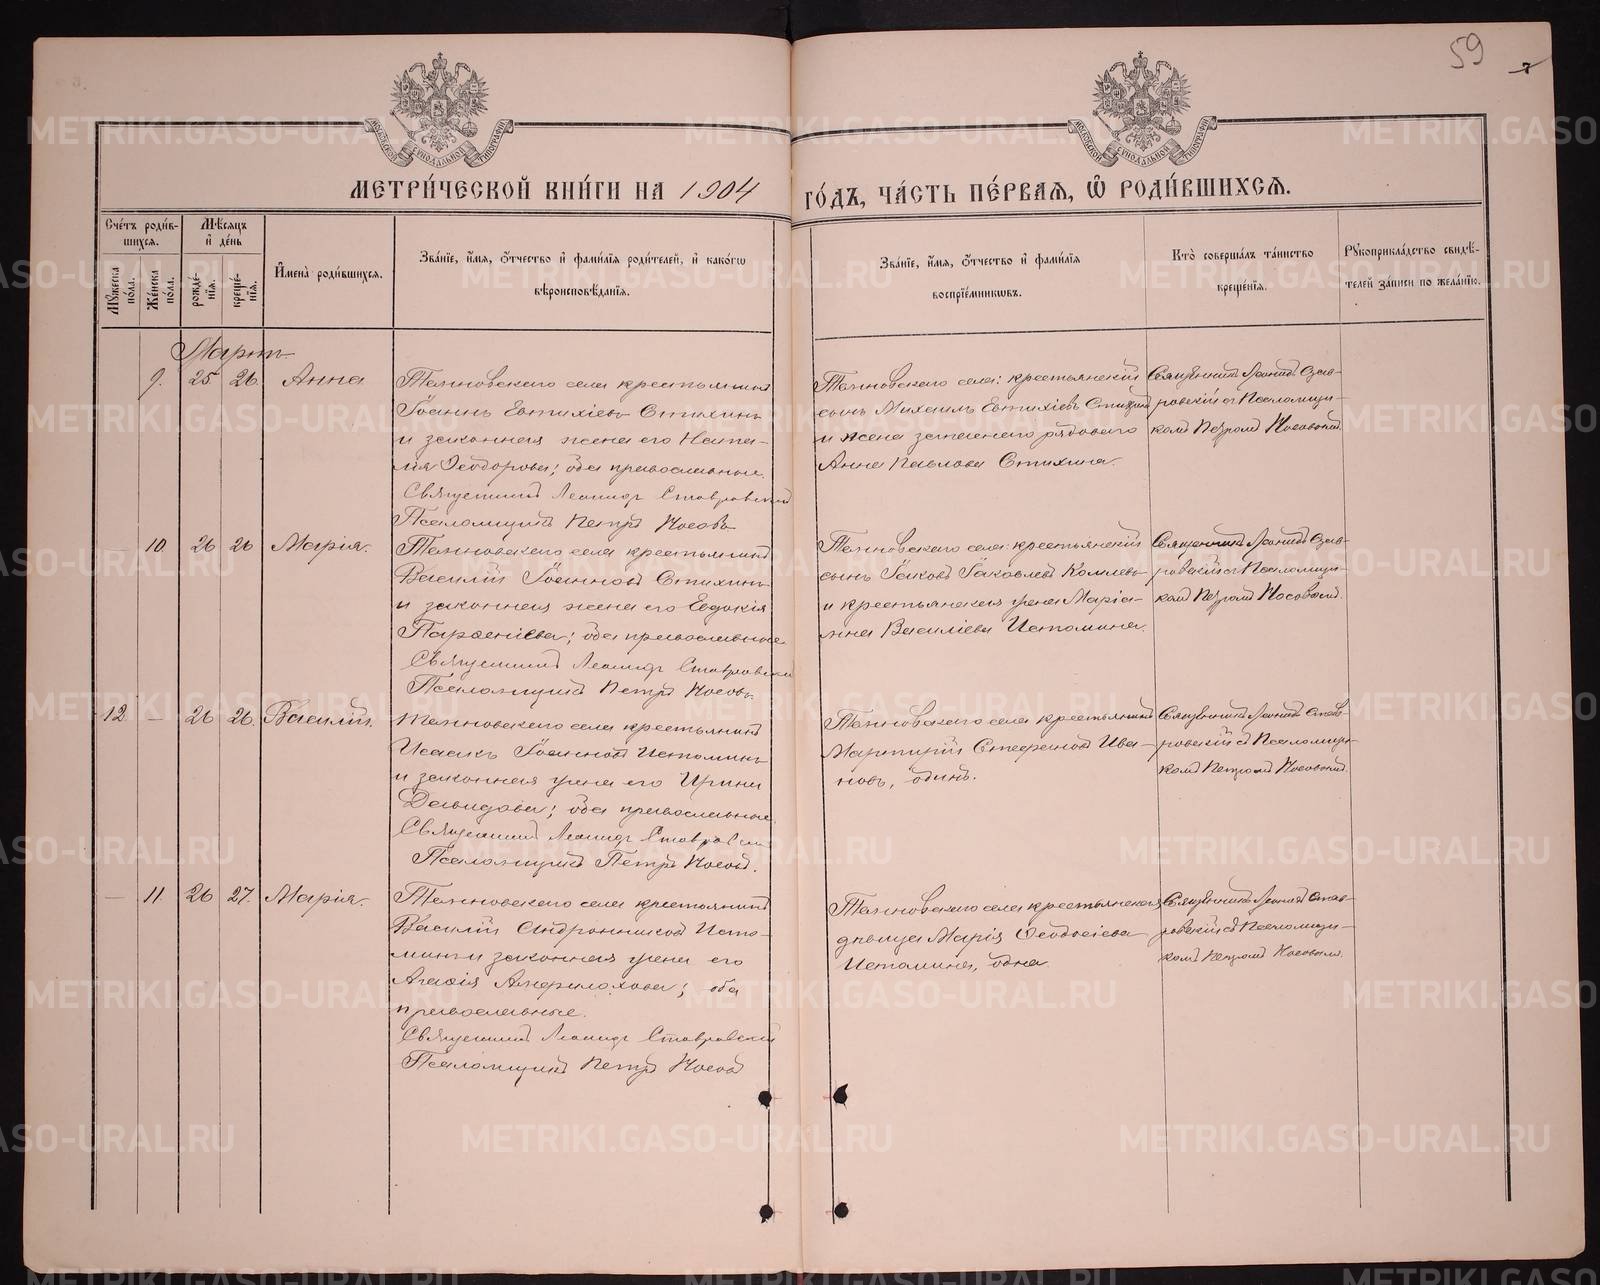 59
7
МОСКОВСКОЙ СѴНОДАЛЬНОЙ ТИПОГРАФІИ
МОСКОВСКОЙ СѴНОДАЛЬНОЙ ТИПОГРАФІИ
МЕТРИ́ЧЕСКОЙ КНИ́ГИ НА 1904 ГО́ДЪ, ЧА́СТЬ ПЕ́РВАЯ, Ѿ РОДИ́ВШИХСЯ.
Сче́тъ роди́в-
шихся.
Мꙋжеска по́ла.
Же́нска по́ла.
Мѣ́сяцъ и҆ де́нь
рожде́-нїя.
креще́-нїя.
И҆мена̀ роди́вшихся.
Зва́нїе, и҆́мя, ѻ҆́тчество и҆ фами́лїя роди́телей, и҆ како́гѡ
вѣроисповѣ́данїя.
Зва́нїе, и҆́мя, ѻ҆́тчество и҆ фами́лїя
воспрїе́мникѡвъ.
Кто̀ соверша́лъ та́инство
креще́нїя.
Рꙋкоприкла́дство свидѣ́-
телей за́писи по жела́нїю.
Мартъ
9. 25 26. Анна
села крестьянинъ
Іоаннъ Евтихіевъ Стихинъ
и законная жена его Ната-
лія Ѳеодорова; оба православные.
Священникъ Леонидъ Ставровскій
Псаломщикъ Петръ Носовъ
села: крестьянскій
сынъ Михаилъ Евтихіевъ Стихинъ
и жена рядоваго
Анна Павлова Стихина.
Священникъ Леонидъ Став-
ровскій съ Псаломщи-
комъ Петромъ Носовымъ.
10. 26 26 Марія.
села крестьянинъ
Василій Іоанновъ Стихинъ
и законная жена его Евдокія
Парѳеніева; оба православные
Священникъ Леонидъ Ставровскій
Псаломщикъ Петръ Носовъ
села: крестьянскій
сынъ Іаковъ Іаковлевъ
и крестьянская жена Марі-
анна Василіева Истомина.
Священникъ Леонидъ Став-
ровскій съ Псаломщи-
комъ Петромъ Носовымъ.
12 — 26 26. Василій.
села крестьянинъ
Исаакъ Іоанновъ Истоминъ
и законная жена его Ирина
Давидова; оба православные.
Священникъ Леонидъ Ставровскій
Псаломщикъ Петръ Носовъ.
села крестьянинъ
Мартирій Стефановъ Ива-
новъ, одинъ.
Священникъ Леонидъ Став-
ровскій съ Псаломщи-
комъ Петромъ Носовымъ.
— 11. 26 27. Марія.
села крестьянинъ
Василій Андрониковъ Исто-
минъ и законная жена его
Агаѳія Амфилохова; оба
православные.
Священникъ Леонидъ Ставровскій
Псаломщикъ Петръ Носовъ
села крестьянская
дѣвица Марія Ѳеодосіева
Истомина, одна
Священникъ Леонидъ Став-
ровскій съ Псаломщи-
комъ Петромъ Носовымъ.
METRIKI.GASO-URAL.RU